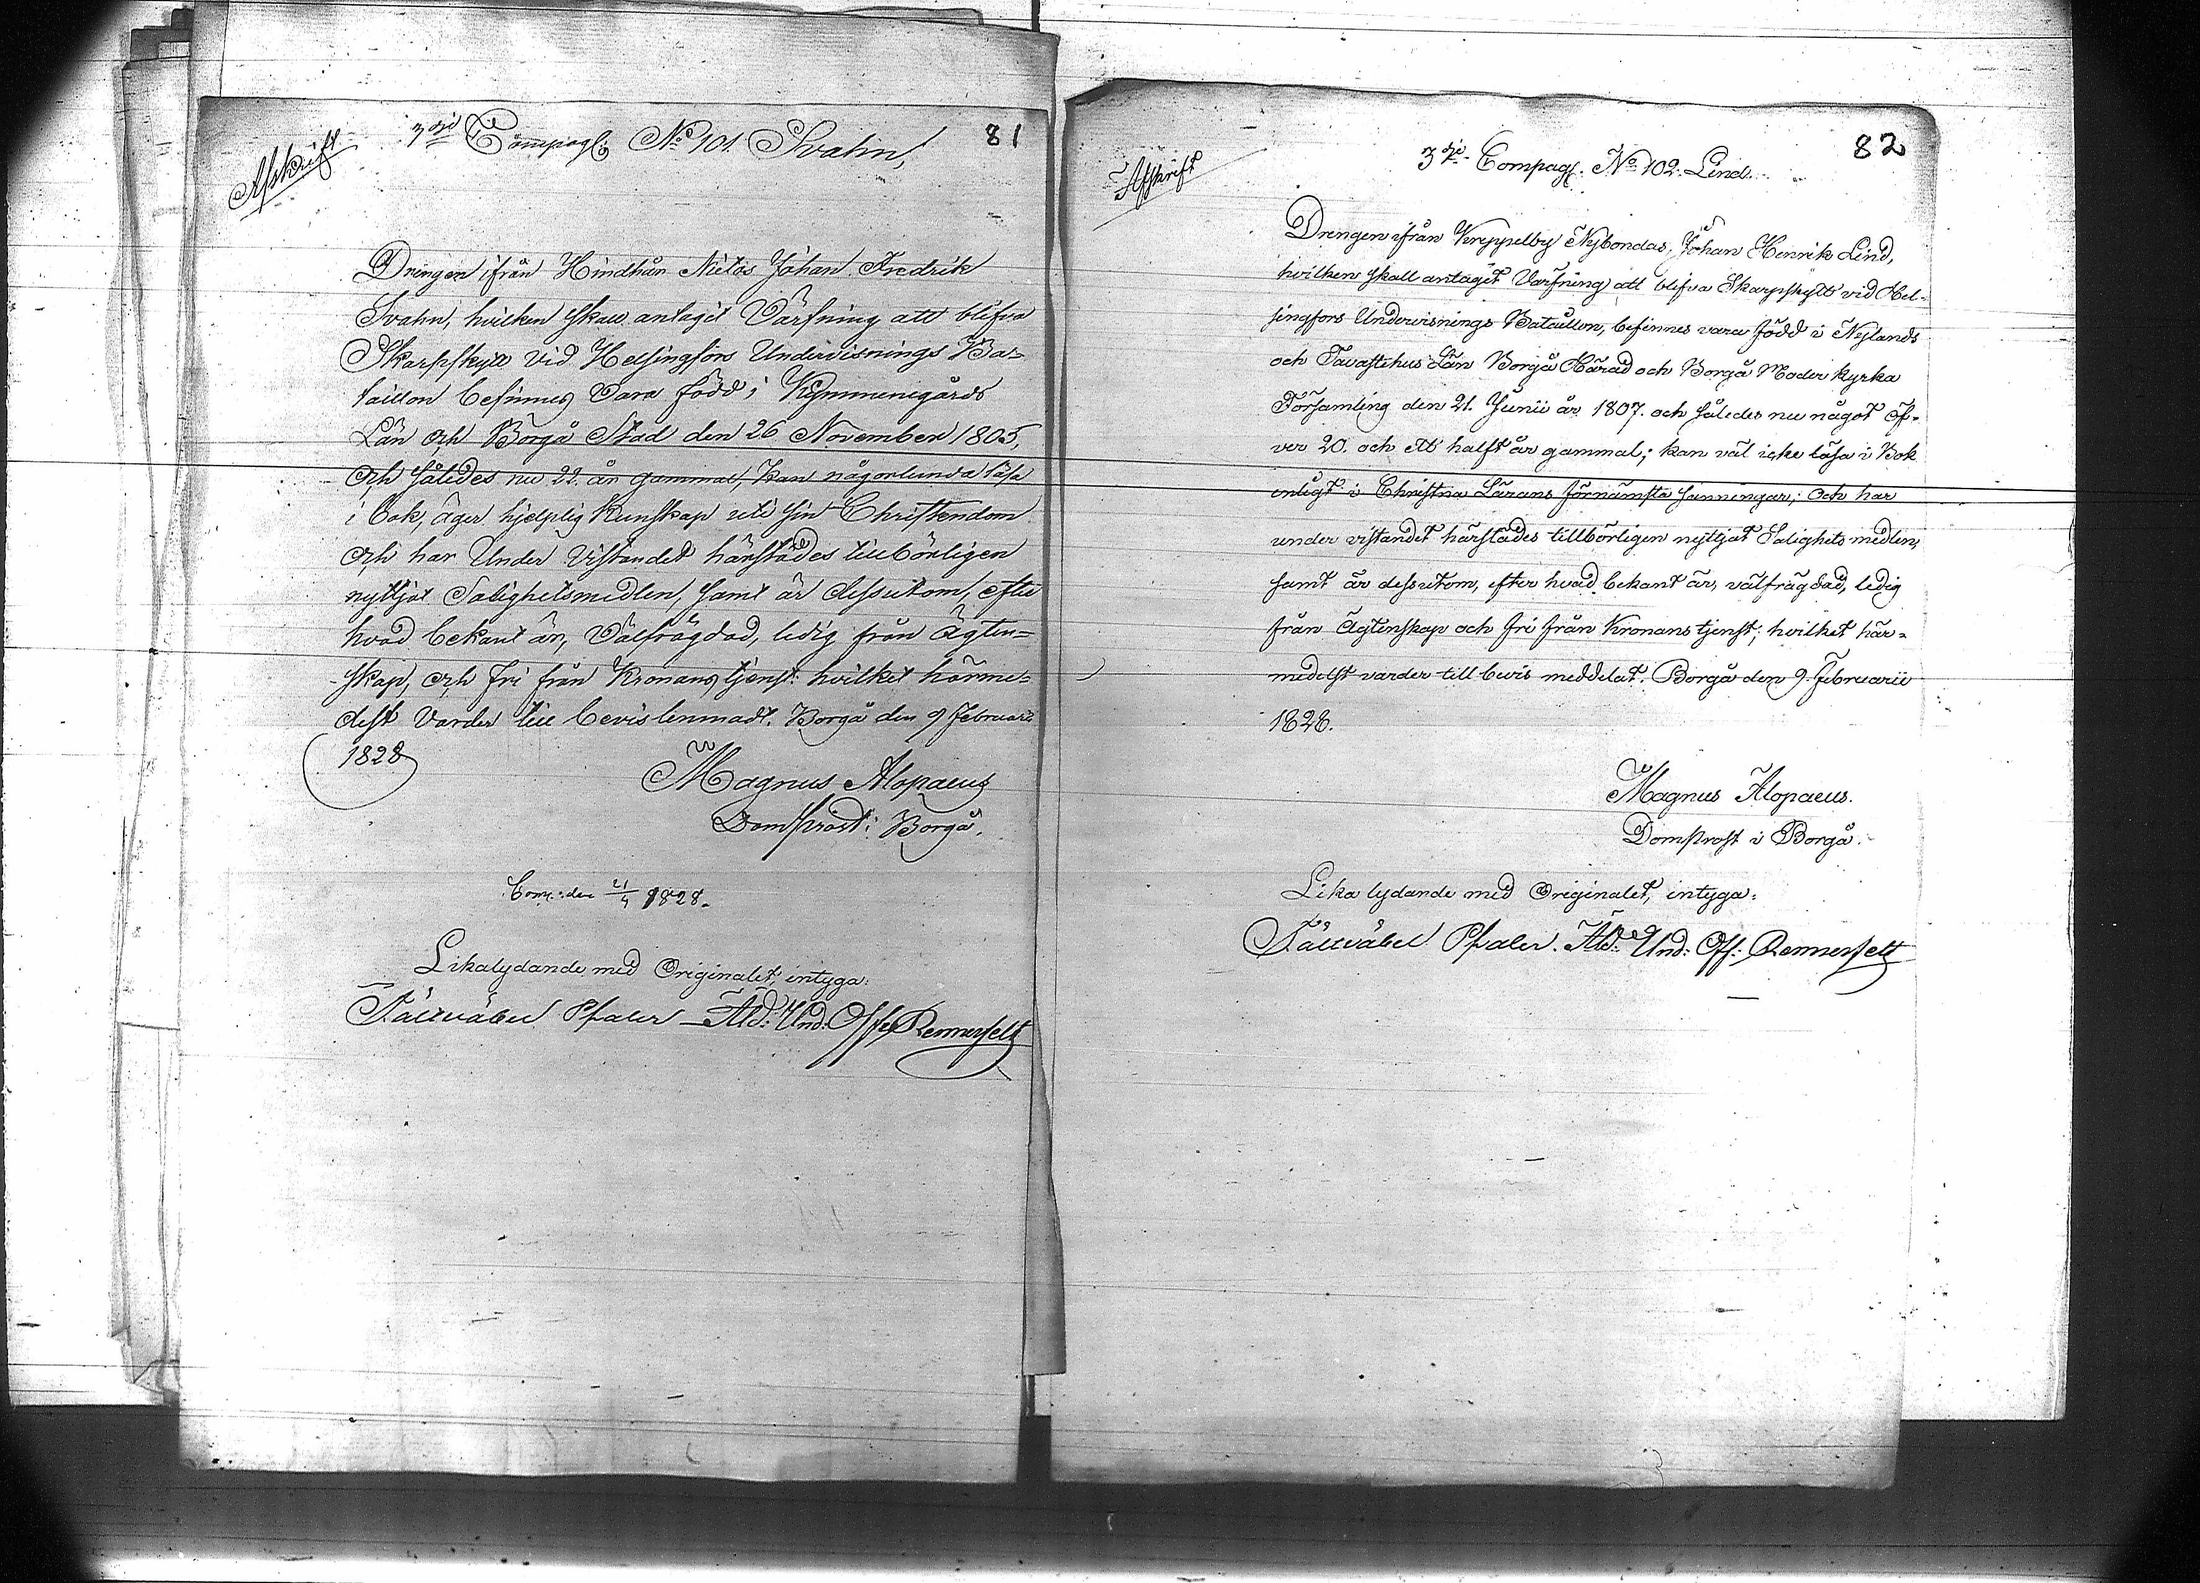 81
Afskrift
3dje Compagl: No 101. Svahn,
Drengen ifrån Hindhår Nietos Johan Fredrik
Svahn, hvilken skall antagit Värfning att blifva
Skarpskytt vid Helsingfors Undervisnings Ba-
taillon befinnes vara född i Kymmenegårds
Län och Borgå Stad den 26 November 1805,
och således nu 22 år gammal, kan någorlunda läsa
i Bok, äger hjelplig Kunskap uti sin Christendom
och har Under Vistandet härstädes tillbörligen
nyttjat Salighetsmedlen, samt är dessutom, efter
hvad bekant är, Välfrägdad, ledig från Ägten-
skap, och fri från Kronans tjenst: hvilket härme-
delst Varder till bevis lemnadt. Borgå den 9 Februarii
1828
Magnus Alopaeus
Domprost i Borgå.
Com: den 21/4 1828.
Likalydande med Originalet, intyga:
Fältväbel Pfaler Äld: Und: Off: Rennerfelt
82
Afskrift
3dje Compagl. No 102. Lind.
Drengen ifrån Kreppelby Nybondas, Johan Henrik Lind,
hvilken skall antagit Värfning att blifva Skarpskytt vid Hel-
singfors Undervisnings Bataillon, befinnes vara född i Nylands
och Tavastehus Län Borgå Härad och Borgå Moder kyrka
Församling den 21. Junii år 1807. och således nu något öf-
ver 20. och ett halft år gammal; kan väl icke läsa i Bok
enligt i Christna Lärans förnämsta sanningar; och har
under vistandet härstädes tillbörligen nyttjat Salighets medlen,
samt är dessutom, efter hvad bekant är, välfrägdad, ledig
från Ägtenskap och fri från Kronans tjenst; hvilket här-
medelst varder till bevis meddelat. Borgå den 9. Februarii
1828.
Magnus Alopaeus.
Domprost i Borgå.
Lika lydande med Originalet, intyga:
Fältväbel Pfaler. Äld: Und: Off: Rennerfelt